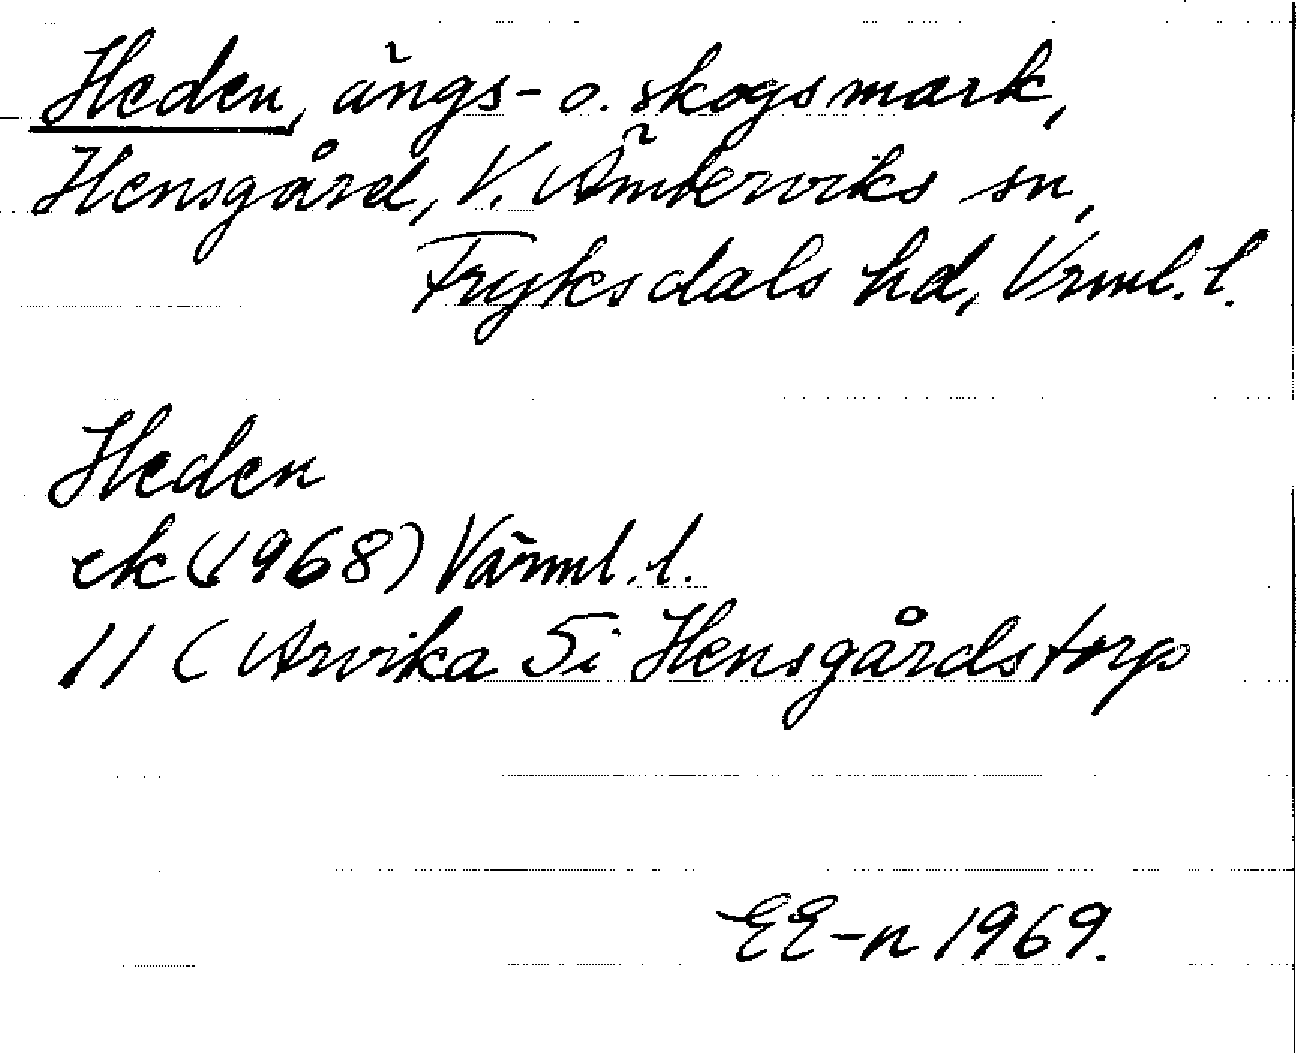 Heden, ängs- o. skogsmark,
Hensgård, V. Ämterviks sn,
Fryksdals hd, Vrml. l.
Heden
ek (1968) Värml. l.
11 ( Arvika 5i Hensgårdstorp
EE-n 1969.